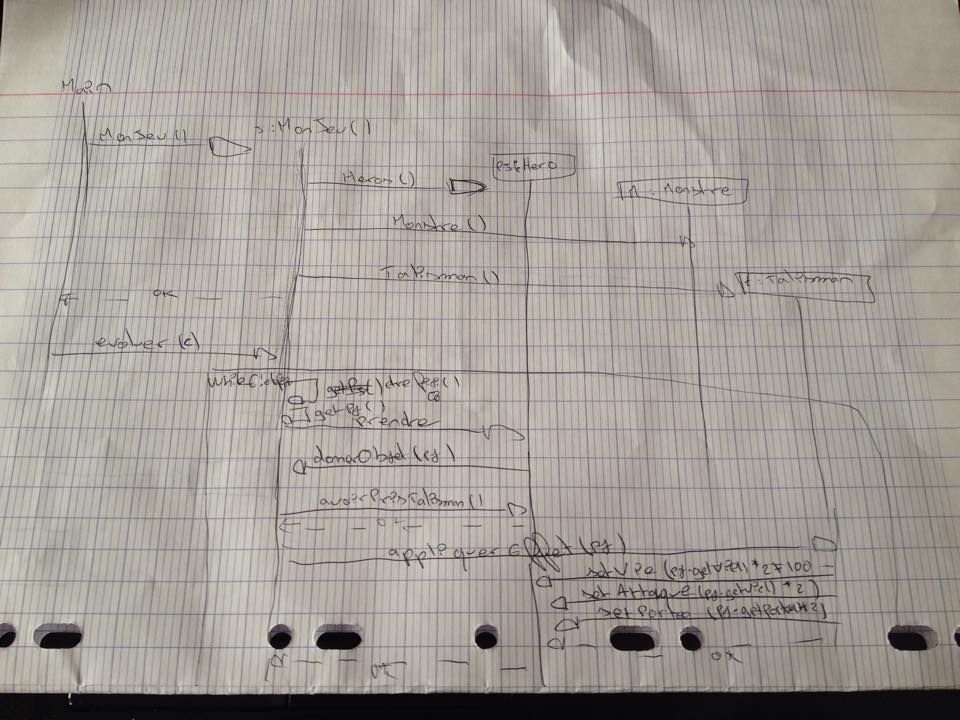 Main
MonJeu()
:MonJeu()
Heros()
Hero
: Monstre
Monstre()
Talisman()
t: Talisman
OK
evoluer(c)
while(
getPst
getPj()
prendre
donnerObjet(pj)
avoirPrisTalisman()
ok
appliquer Effet (pj)
set Vie (pj.getVie()*2*100
set Attaque (pj.getVie()*2)
set Portee (pj.getPortee*2)
OK
OK